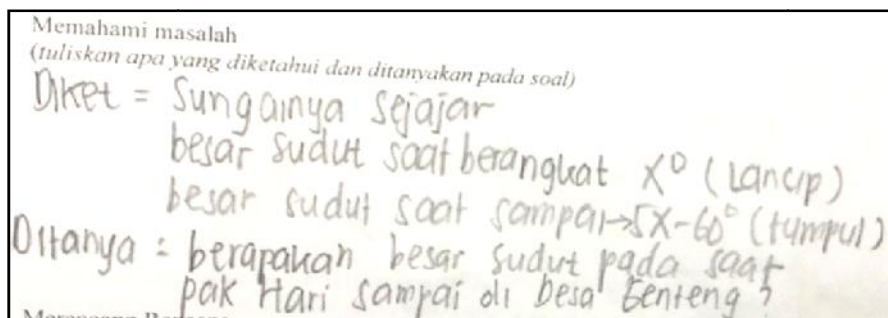 Memahami masalah
(tuliskan apa yang diketahui dan ditanyakan pada soal)
Diket = Sungainya sejajar
besar sudut saat berangkat x° (Lancip)
besar sudut saat sampai→5x-60° (tumpul)
Ditanya : berapakah besar sudut pada saat
pak Hari sampai di Desa Benteng?